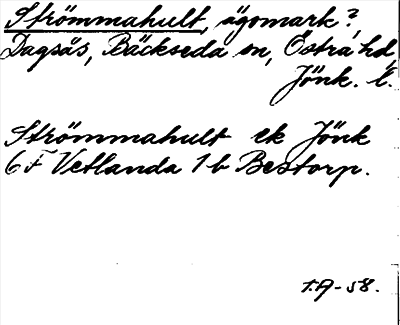 Strömmahult, ägomark?,
Dagsås, Bäckseda sn, Östra hd,
Jönk. l.
Strömmahult ek Jönk
6 F Vetlanda 1 b Bestorp.
T.A-58.